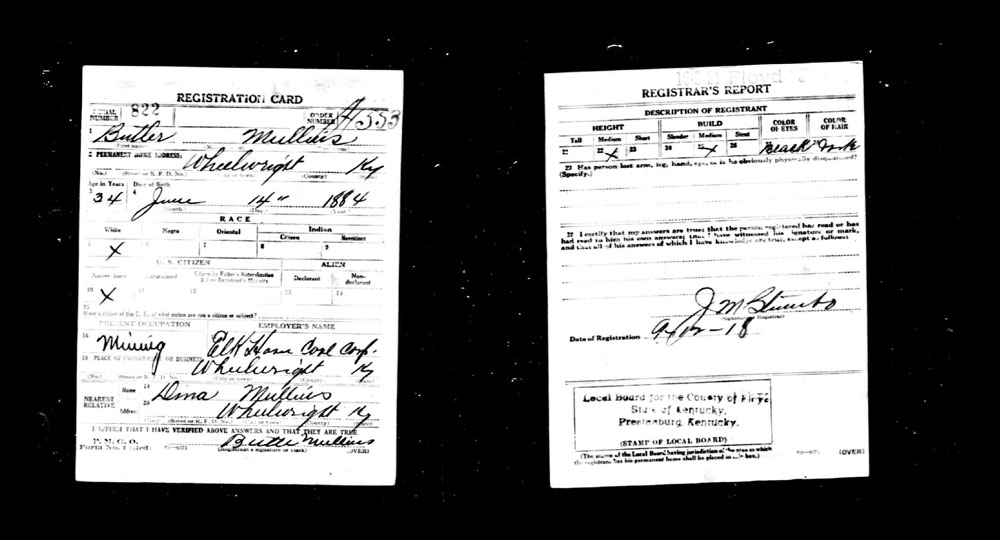 REGISTRATION CARD
SERIAL NUMBER 822 ORDER NUMBER A 553
1 Butler Mullins
First name
2 PERMANENT HOME ADDRESS: Wheelwright Ky
(No.) (Street or R. F. D. No.) (City or town) (County) (State)
Age in Years Date of Birth
3 34 4 June 14" 1884
Month Day Year
RACE
White Negro Oriental Indian
Citizen Noncitizen
5 X 6 7 8 9
U. S. CITIZEN ALIEN
Native Born Naturalized Citizen by Father's Naturalization Before Registrant's Majority Declarant Non-declarant
10 X 11 12 13 14
15
If not a citizen of the U. S., of what nation are you a citizen or subject?
PRESENT OCCUPATION EMPLOYER'S NAME
16 Mining Elk Horn Coal Corp.
18 PLACE OF EMPLOYMENT OR BUSINESS: Wheelwright Ky
(No.) (Street or R. F. D. No.) (City or town) (County) (State)
NEAREST RELATIVE Name 19 Dina Mullins
Address 20 Wheelwright Ky
(No.) (Street or R. F. D. No.) (City or town) (County) (State)
I AFFIRM THAT I HAVE VERIFIED ABOVE ANSWERS AND THAT THEY ARE TRUE
P. M. G. O.
Form No. 1 (Red) Butler Mullins
(Registrant's signature or mark) (OVER)
Floyd
REGISTRAR'S REPORT
DESCRIPTION OF REGISTRANT
HEIGHT BUILD COLOR OF EYES COLOR OF HAIR
Tall Medium Short Slender Medium Stout
21 22 X 23 24 25 X 26 27 Black 28 Dark
29 Has person lost arm, leg, hand, eye, or is he obviously physically disqualified?
(Specify.)
30 I certify that my answers are true; that the person registered has read or has
had read to him his own answers; that I have witnessed his signature or mark,
and that all of his answers of which I have knowledge are true, except as follows:
J M
(Signature of Registrar)
Date of Registration 9-12-18
Local Board for the County of Floyd
State of Kentucky,
Prestonburg, Kentucky.
(STAMP OF LOCAL BOARD)
(The stamp of the Local Board having jurisdiction of the area in which
the registrant has his permanent home shall be placed in this box.)
(OVER)